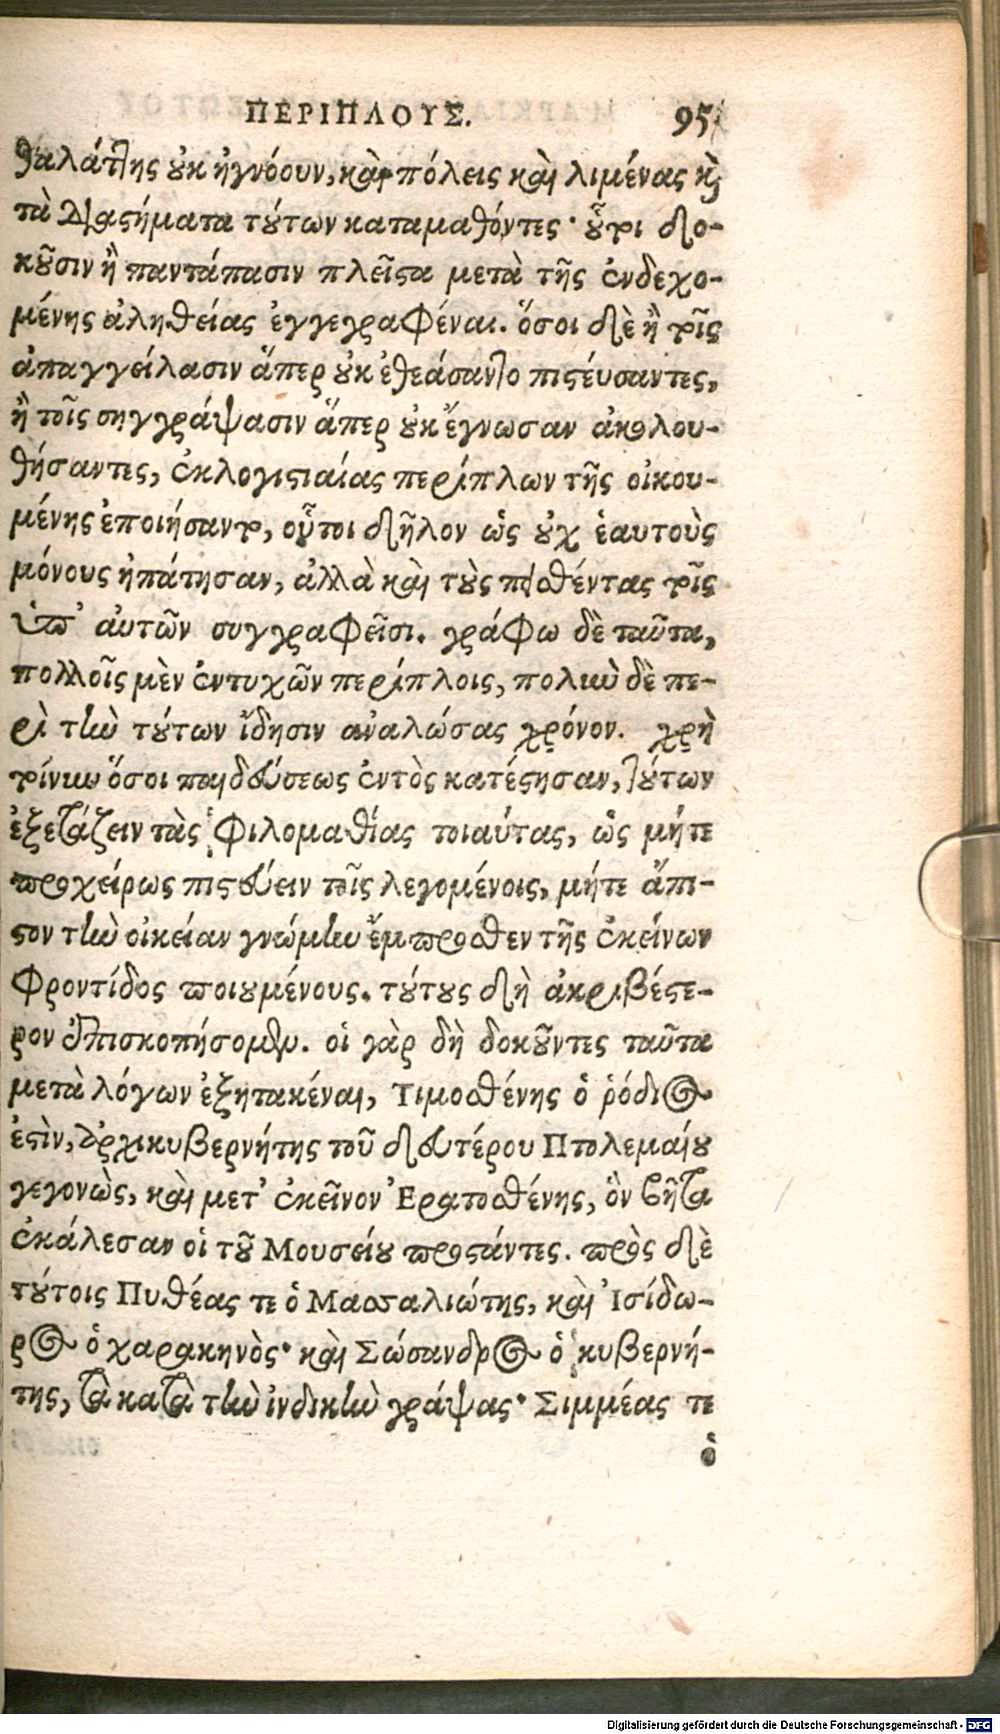 ΠΕΡΙΠΛΟΥΣ. 95
θαλάττης οὐκ ἠγνόουν, καὶ πόλεις καὶ λιμένας καὶ
τὰ διαστήματα τούτων καταμαθόντες· οὗτοι δο-
κοῦσιν ἢ παντάπασιν πλεῖστα μετὰ τῆς ἐνδεχο-
μένης ἀληθείας ἐγγεγραφέναι. ὅσοι δὲ ἢ τοῖς
ἀπαγγείλασιν ἅπερ οὐκ ἐθεάσαντο πιστέυσαντες,
ἢ τοῖς σηγγράψασιν ἅπερ οὐκ ἔγνωσαν ἀκολου-
θήσαντες, ἐκλογιστιαίας περίπλων τῆς οἰκου-
μένης ἐποιήσαντο, οὗτοι δῆλον ὡς οὐχ ἑαυτοὺς
μόνους ἠπάτησαν, ἀλλὰ καὶ τοὺς προσθέντας τοῖς
ὑπ' αὐτῶν συγγραφεῖσι. γράφω δὲ ταῦτα,
πολλοῖς μὲν ἐντυχῶν περίπλοις, πολὺν δὲ πε-
ρὶ τὴν τούτων ἴδησιν ἀναλώσας χρόνον. χρὴ
τοίνυν ὅσοι παιδεύσεως ἐντὸς κατέστησαν, τούτων
ἐξετάζειν τὰς φιλομαθίας τοιαύτας, ὡς μήτε
προχείρως πιστεύειν τοῖς λεγομένοις, μήτε ἄπι-
στον τὴν οἰκείαν γνώμην ἔμπροσθεν τῆς ἐκείνων
φροντίδος ποιουμένους. τούτους δὴ ἀκριβέστε-
ρον ἐπισκοπήσομεν. οἱ γὰρ δὴ δοκοῦντες ταῦτα
μετὰ λόγων ἐξητακέναι, Τιμοσθένης ὁ ῥόδιος
ἐστὶν, ἀρχικυβερνήτης τοῦ δευτέρου Πτολεμαίου
γεγονὼς, καὶ μετ' ἐκεῖνον Ἐρατοσθένης, ὃν βῆτα
ἐκάλεσαν οἱ τοῦ Μουσείου προστάντες. πρὸς δὲ
τούτοις Πυθέας τε ὁ Μασσαλιώτης, καὶ Ἰσίδω-
ρος ὁ χαρακηνὸς· καὶ Σώσανδρος ὁ κυβερνή-
της, τὰ κατὰ τὴν ἰνδικὴν γράψας· Σιμμέας τε
ὁ
Digitalisierung gefördert durch die Deutsche Forschungsgemeinschaft - DFG